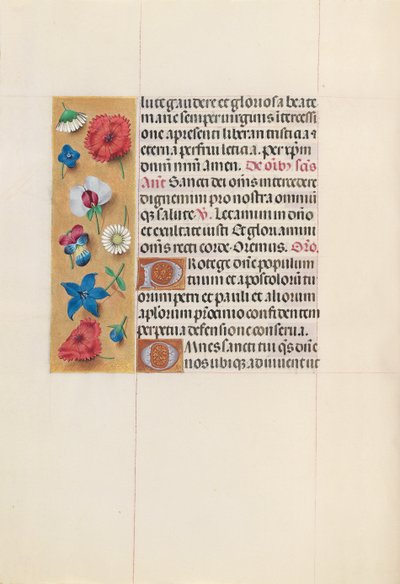 lute gaudere et gloriosa beate
marie semper virginis intercessi
one a presenti liberari tristicia et
eterna perfrui leticia. per xp̄m
dominū nr̄m amen. De oīb⁹ scīs
Añt Sancti dei om̄s intercedere
dignemini pro nostra omniū
q̄ salute. V̄. Letamini in dño
et exultate iusti Et gloriamini
om̄s recti corde. Oremus. Oro.
Protege dñe populum
tuum et apostolorū tu
orum petri et pauli et aliorum
apl̄orum pr̄ocinio confidentem
perpetua defensione conserua.
Omnes sancti tui q̄s dñe
nos ubiq̄ adiuuent ut